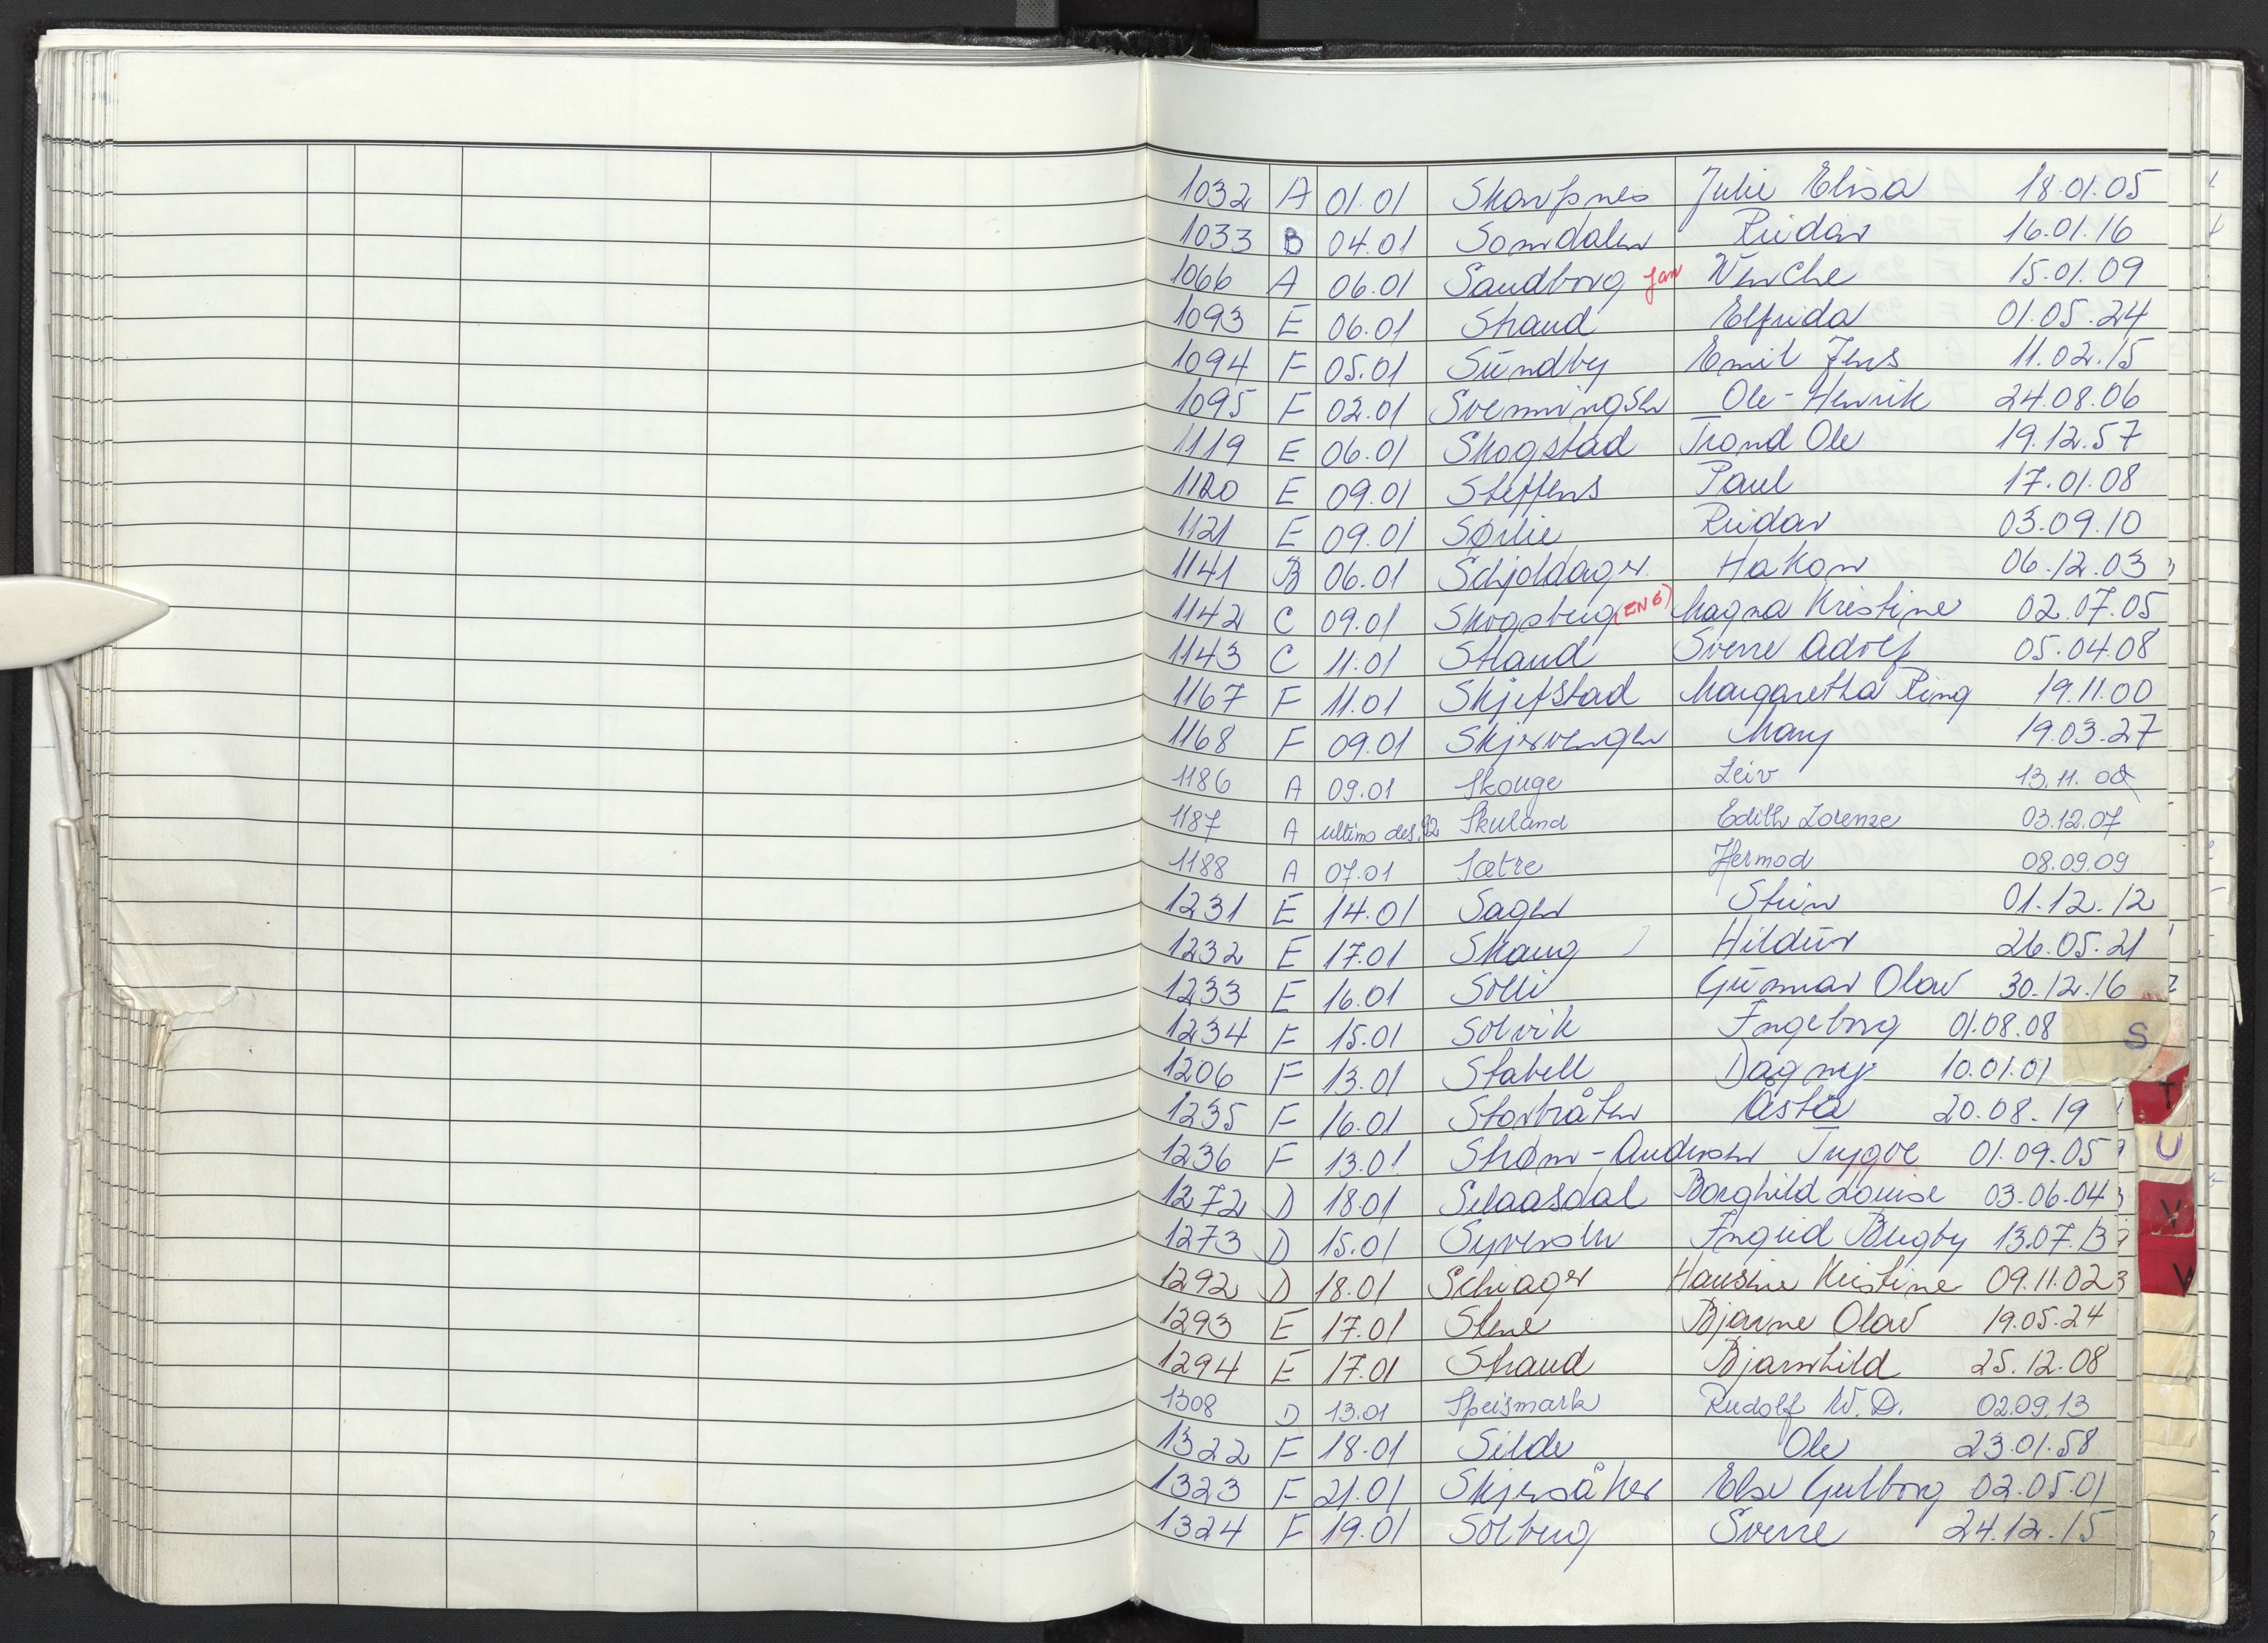 1032 A 01.01 Skarpnes Julie Elisa 18.01.05
1033 B 04.01 Somdalen Reidar 16.01.16
1066 A 06.01 Sandborg Jan Wenche 15.01.09
1093 E 06.01 Strand Elfrida 01.05.24
1094 F 05.01 Sundby Emil Jens 11.02.15
1095 F 02.01 Svenningsen Ole-Henrik 24.08.06
1119 E 06.01 Skogstad Trond Ole 19.12.57
1120 E 09.01 Steffens Paul 17.01.08
1121 E 09.01 Sørlie Reidar 03.09.10
1141 B 06.01 Schjoldager Håkon 06.12.03
1142 C 09.01 Skogsberg (ENG) Magna Kristine 02.07.05
1143 C 11.01 Strand Sverre Adolf 05.04.08
1167 F 11.01 Skjefstad Margaretha Ring 19.11.00
1168 F 09.01 Skjervengen Mary 19.03.27
1186 A 09.01 Skouge Leiv 13.11.02
1187 A ultimo des.92 Skuland Edith Lorenze 03.12.07
1188 A 07.01 Sætre Hermod 08.09.09
1231 E 14.01 Sagen Stein 01.12.12
1232 E 17.01 Skaug Hildur 26.05.21
1233 E 16.01 Solli Gunnar Olav 30.12.16
1234 F 15.01 Solvik Ingeborg 01.08.08
S
1206 F 13.01 Stabell Dagny 10.01.01
T
1235 F 16.01 Storbråten Åsta 20.08.19
1236 F 13.01 Strøm-Andersen Trygve 01.09.05
U
1272 D 18.01 Selaasdal Borghild Louise 03.06.04
V
1273 D 15.01 Syversen Ingrid Bugby 13.07.13
1292 D 18.01 Schiager Hansine Kristine 09.11.02
1293 E 17.01 Stene Bjarne Olav 19.05.24
1294 E 17.01 Strand Bjarnhild 25.12.08
1308 D 13.01 Speismark Rudolf W.D. 02.09.13
1322 F 18.01 Silde Ole 23.01.58
1323 F 21.01 Skjersåker Else Gulborg 02.05.01
1324 F 19.01 Solberg Sverre 24.12.15